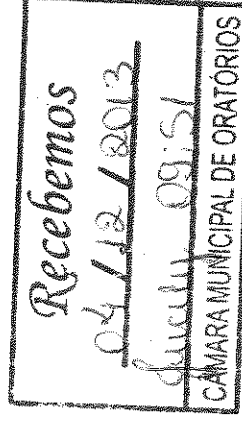 Recebemos
04/12/2013
09:51
CÂMARA MUNICIPAL DE ORATÓRIOS